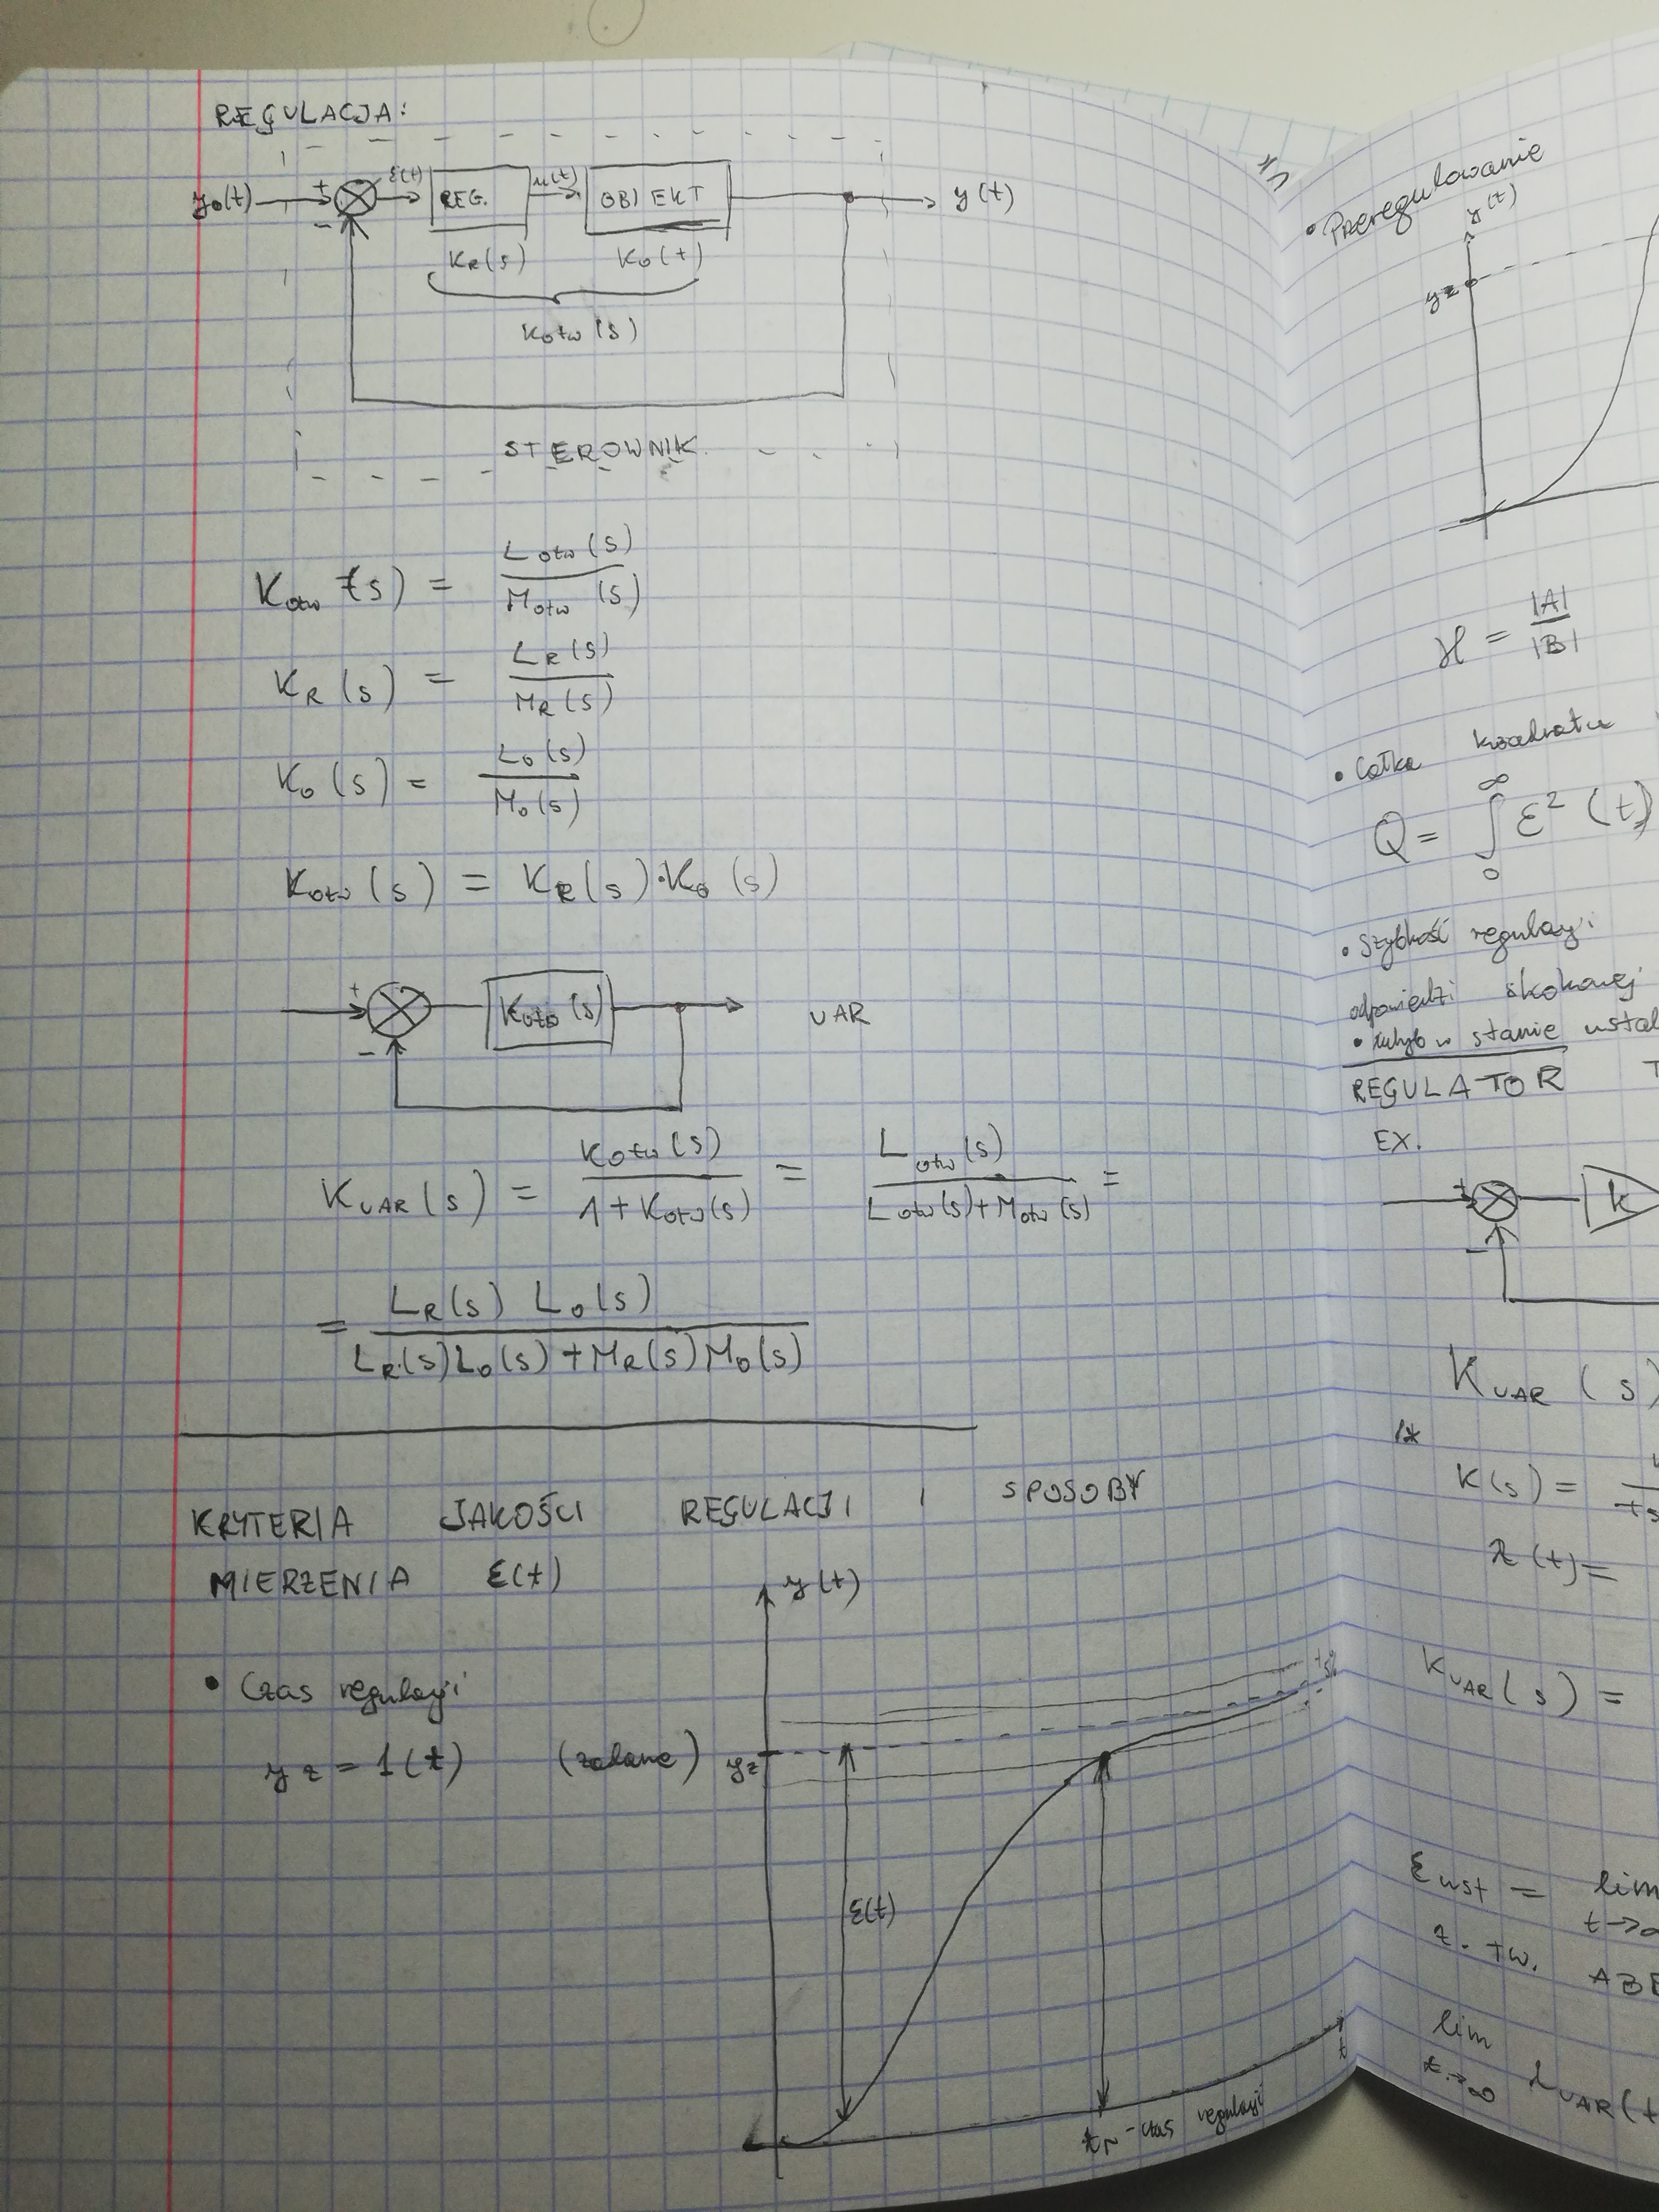 REGULACJA:
y₀(t) + - ε(t) REG. u(t) OBIEKT y(t)
K_R(s) K_o(t)
K_otw(s)
STEROWNIK
K_otw(s) = L_otw(s) / M_otw(s)
K_R(s) = L_R(s) / M_R(s)
K_o(s) = L_o(s) / M_o(s)
K_otw(s) = K_R(s)·K_o(s)
+ - K_otw(s) UAR
K_UAR(s) = K_otw(s) / 1+K_otw(s) = L_otw(s) / L_otw(s)+M_otw(s) =
= L_R(s) L_o(s) / L_R(s)L_o(s)+M_R(s)M_o(s)
KRYTERIA JAKOŚCI REGULACJI I SPOSOBY
MIERZENIA ε(t)
y(t)
• Czas regulacji
+5%
y_z = 1(t) (zadane) y_z
ε(t)
t
t_r - czas regulacji
• Przeregulowanie
y(t)
y_z
ϰ = |A| / |B|
• Całka kwadratu
Q = ∫₀^∞ ε² (t)
• Szybkość regulacji
odpowiedzi skokowej
• uchyb w stanie ustal
REGULATOR
EX.
+ - k
K_UAR (s)
K(s) =
λ(t) =
K_UAR(s) =
ε_ust = lim
t→∞
z. tw.
lim
t→∞ λ_UAR(t